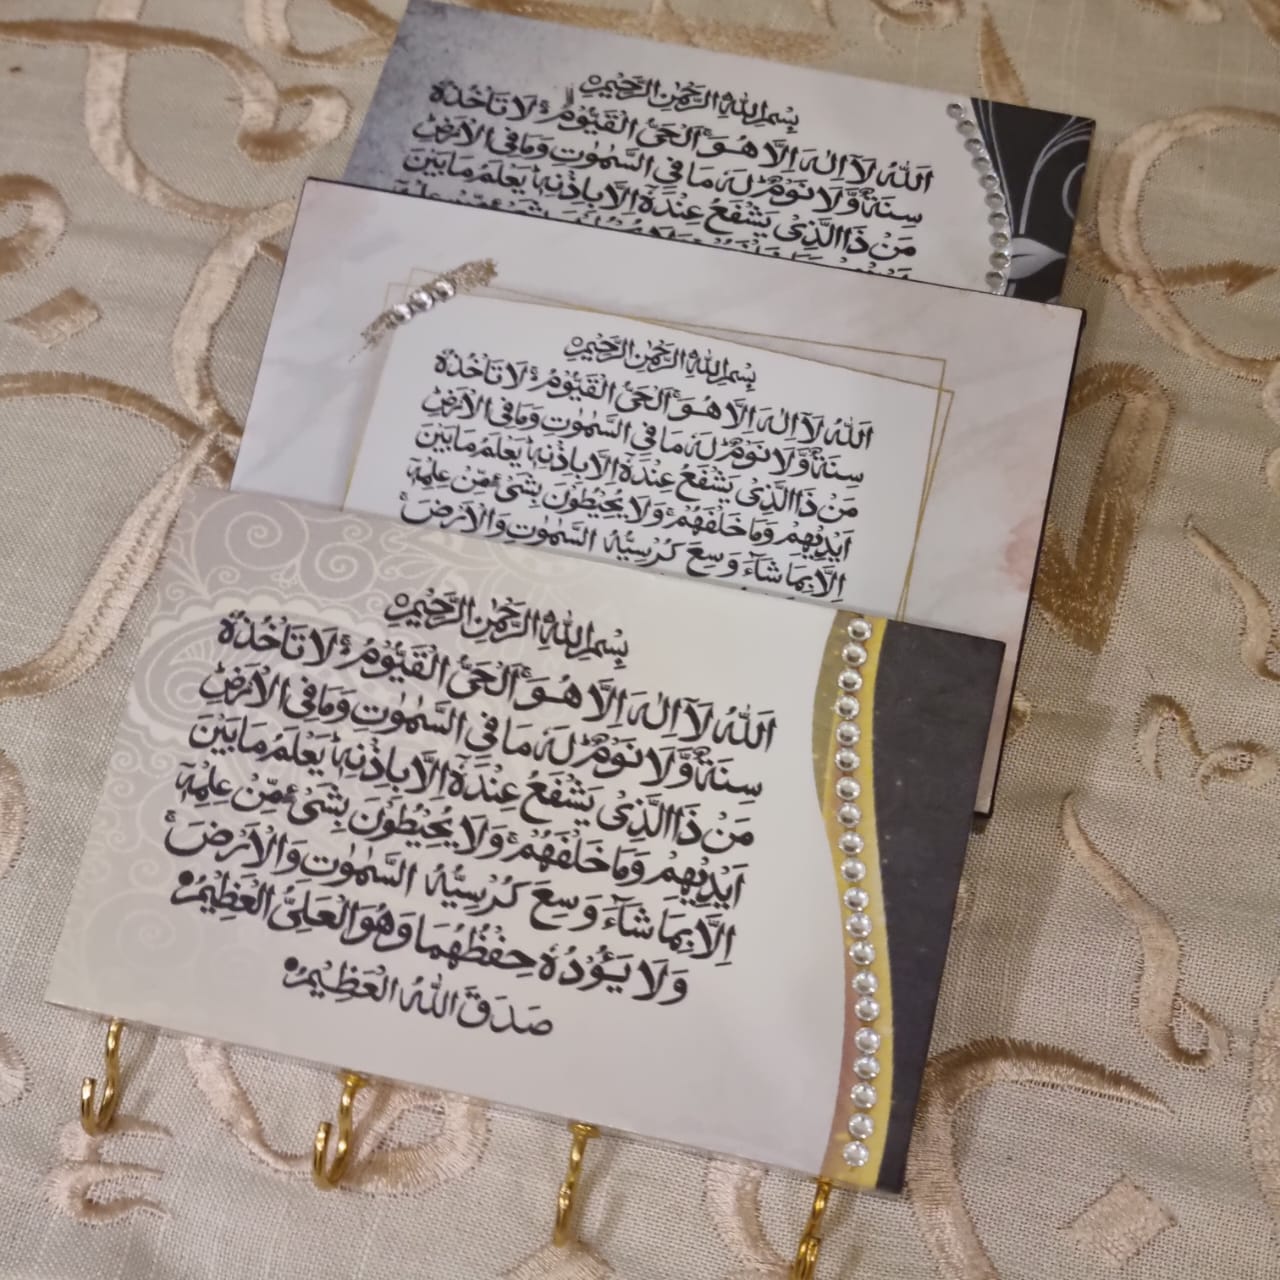 بِسْمِ اللهِ الرَّحْمٰنِ الرَّحِيْمِ
اَللهُ لَآ اِلٰهَ اِلَّا هُوَ ۚ اَلْحَيُّ الْقَيُّوْمُ ۚ لَا تَاْخُذُهٗ
سِنَةٌ وَّلَا نَوْمٌ ؕ لَهٗ مَا فِي السَّمٰوٰتِ وَمَا فِي الْاَرْضِ
مَنْ ذَا الَّذِيْ يَشْفَعُ عِنْدَهٗٓ اِلَّا بِاِذْنِهٖ ؕ يَعْلَمُ مَا بَيْنَ
بِسْمِ اللهِ الرَّحْمٰنِ الرَّحِيْمِ
اَللهُ لَآ اِلٰهَ اِلَّا هُوَ ۚ اَلْحَيُّ الْقَيُّوْمُ ۚ لَا تَاْخُذُهٗ
سِنَةٌ وَّلَا نَوْمٌ ؕ لَهٗ مَا فِي السَّمٰوٰتِ وَمَا فِي الْاَرْضِ
مَنْ ذَا الَّذِيْ يَشْفَعُ عِنْدَهٗٓ اِلَّا بِاِذْنِهٖ ؕ يَعْلَمُ مَا بَيْنَ
اَيْدِيْهِمْ وَمَا خَلْفَهُمْ ۚ وَلَا يُحِيْطُوْنَ بِشَيْءٍ مِّنْ عِلْمِهٖٓ
اِلَّا بِمَا شَآءَ ۚ وَسِعَ كُرْسِيُّهُ السَّمٰوٰتِ وَالْاَرْضَ ۚ
بِسْمِ اللهِ الرَّحْمٰنِ الرَّحِيْمِ
اَللهُ لَآ اِلٰهَ اِلَّا هُوَ ۚ اَلْحَيُّ الْقَيُّوْمُ ۚ لَا تَاْخُذُهٗ
سِنَةٌ وَّلَا نَوْمٌ ؕ لَهٗ مَا فِي السَّمٰوٰتِ وَمَا فِي الْاَرْضِ
مَنْ ذَا الَّذِيْ يَشْفَعُ عِنْدَهٗٓ اِلَّا بِاِذْنِهٖ ؕ يَعْلَمُ مَا بَيْنَ
اَيْدِيْهِمْ وَمَا خَلْفَهُمْ ۚ وَلَا يُحِيْطُوْنَ بِشَيْءٍ مِّنْ عِلْمِهٖٓ
اِلَّا بِمَا شَآءَ ۚ وَسِعَ كُرْسِيُّهُ السَّمٰوٰتِ وَالْاَرْضَ ۚ
وَلَا يَـُٔوْدُهٗ حِفْظُهُمَا ۚ وَهُوَ الْعَلِيُّ الْعَظِيْمُ
صَدَقَ اللهُ الْعَظِيْمُ